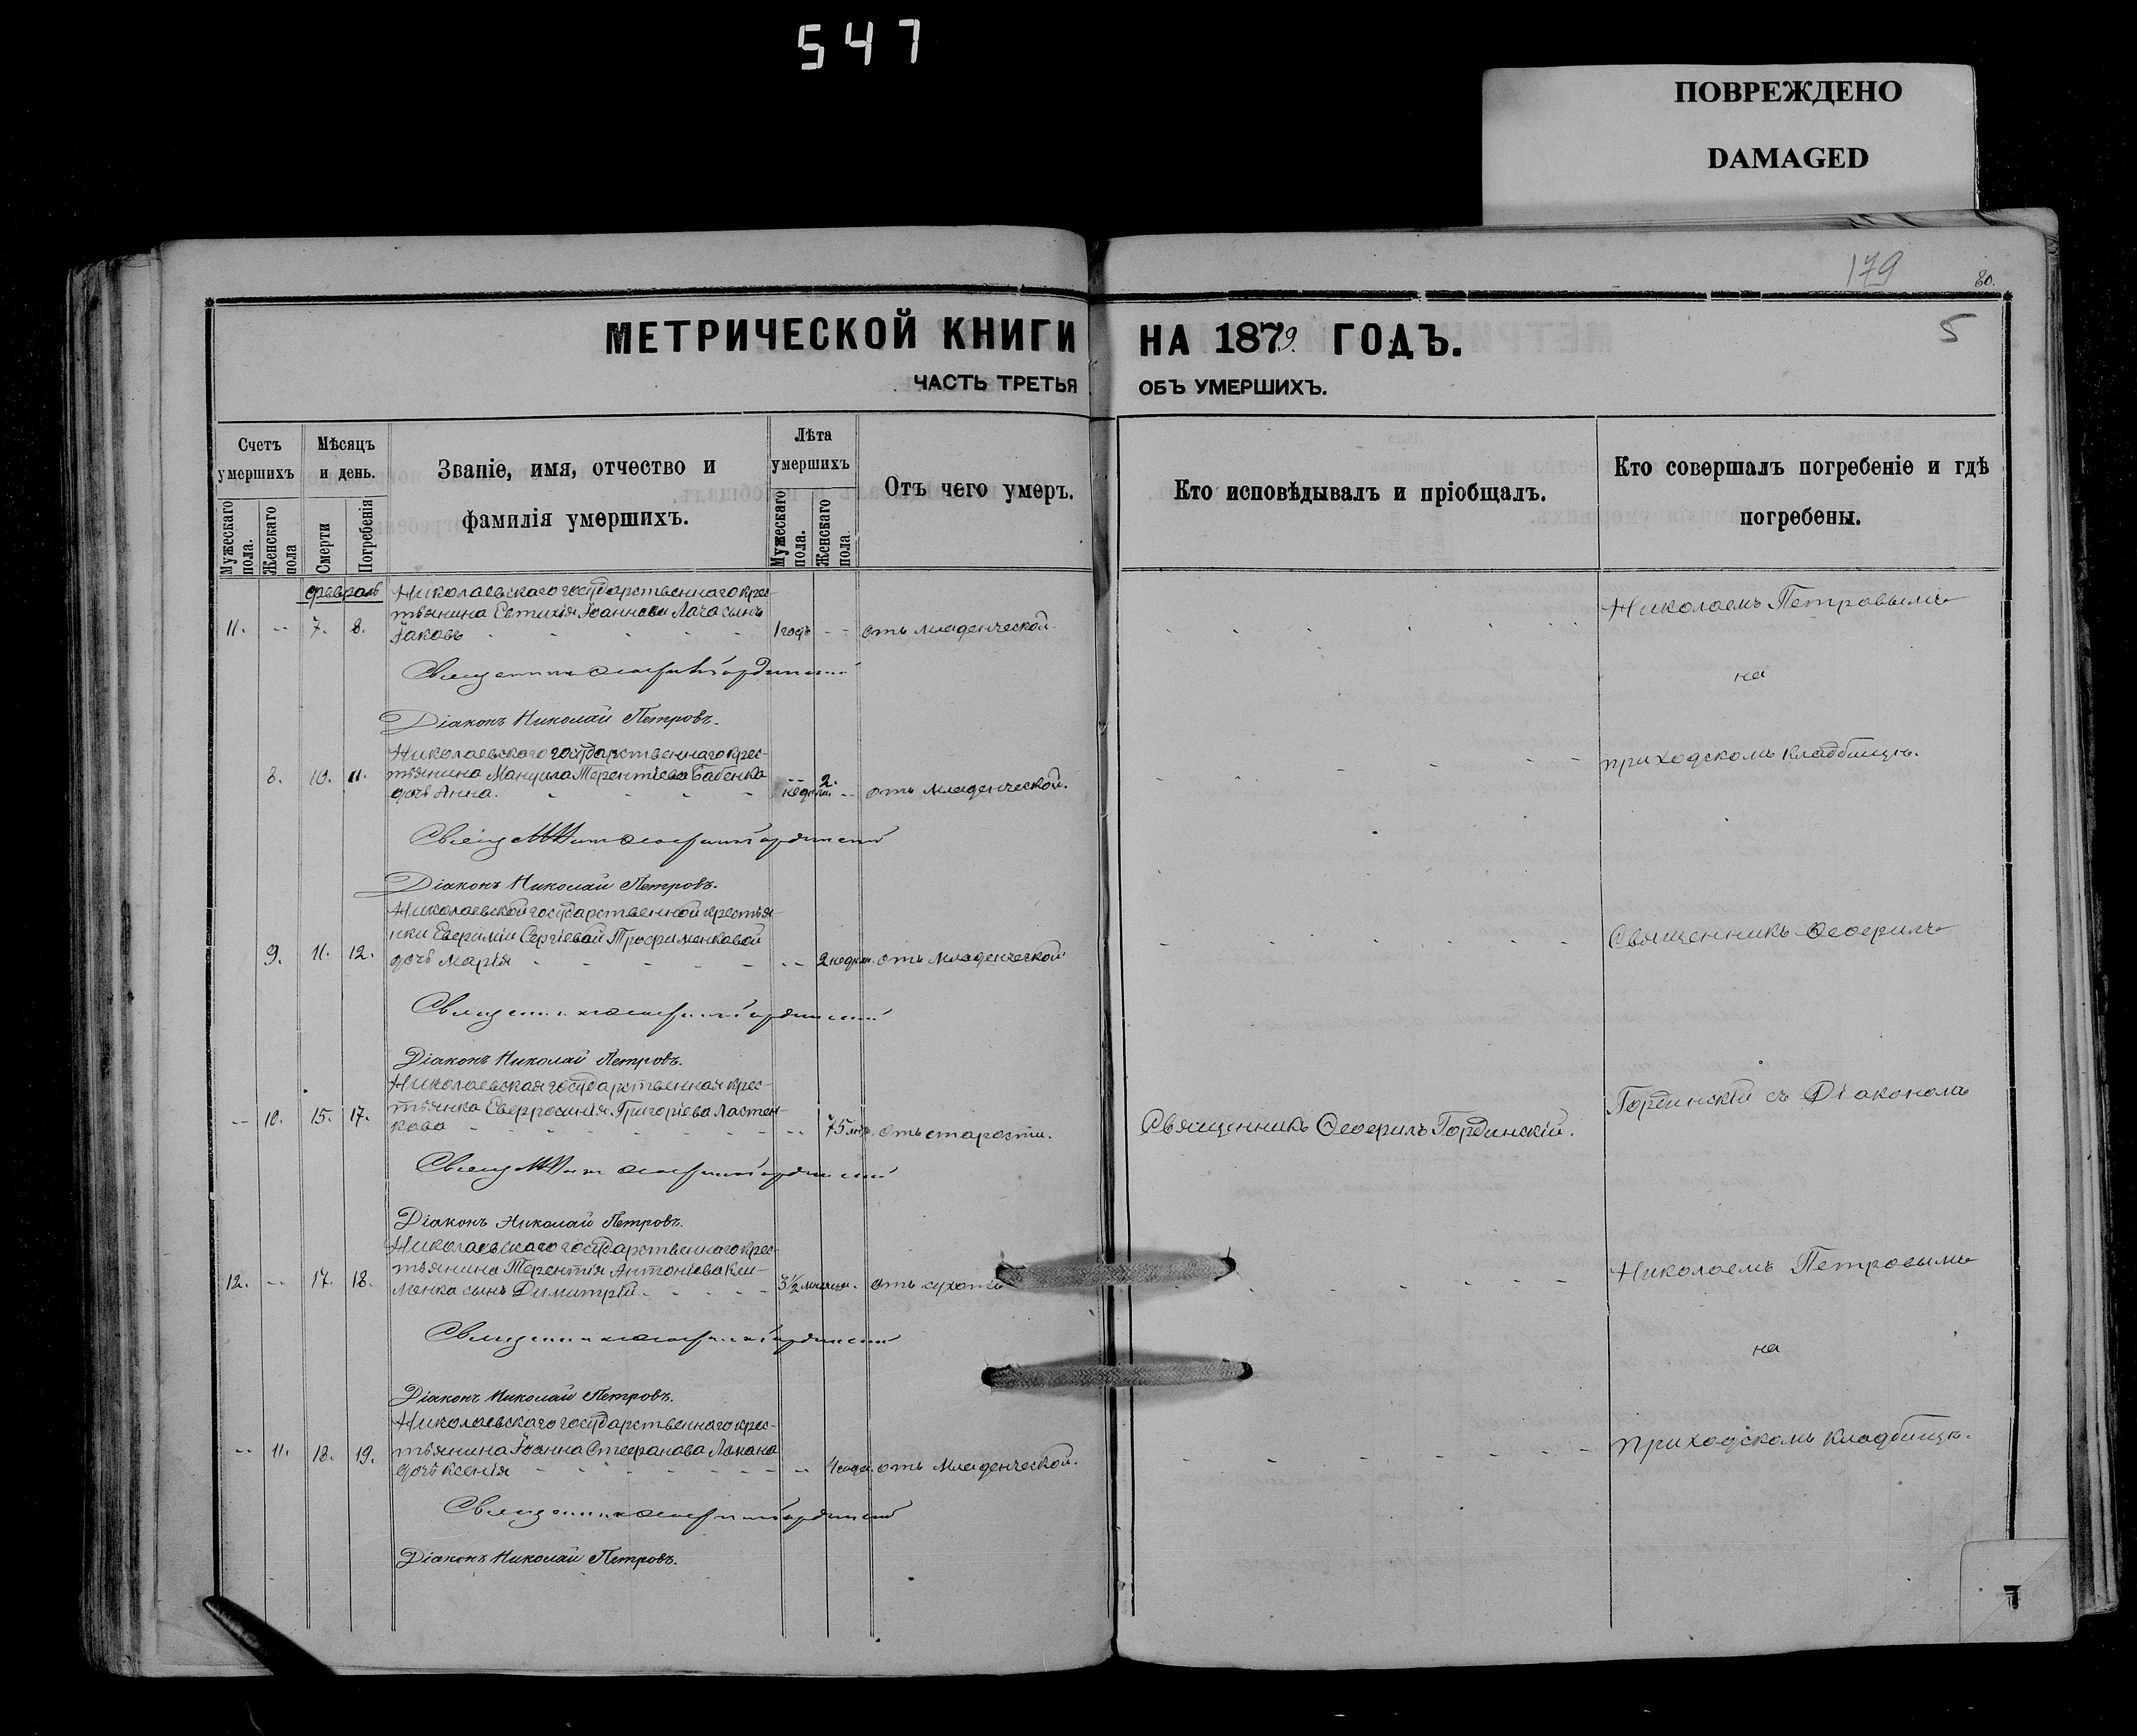 547
ПОВРЕЖДЕНО
DAMAGED
179
80.
5
МЕТРИЧЕСКОЙ КНИГИ НА 1879. ГОДЪ.
ЧАСТЬ ТРЕТЬЯ ОБЪ УМЕРШИХЪ.
Счетъ умершихъ
Мужескаго пола.
Женскаго пола
Мѣсяцъ и день.
Смерти
Погребенія
Званіе, имя, отчество и
фамилія умершихъ.
Лѣта умершихъ
Мужескаго пола.
Женскаго пола.
Отъ чего умеръ.
Кто исповѣдывалъ и пріобщалъ.
Кто совершалъ погребеніе и гдѣ
погребены.
Февраль
Николаевскаго государственнаго крес-
тьянина Евтихія Іоаннова Лача сынъ
11. -- 7. 8. Іаковъ 1 годъ -- отъ младенческой
Николаемъ Петровымъ
на
Діаконъ Николай Петровъ.
Николаевскаго государственнаго крес-
тьянина Мануила Терентіева Бабенка
8. 10. 11. дочь Анна. -- 2. недѣли -- отъ младенческой.
приходскомъ кладбищѣ.
Діаконъ Николай Петровъ.
Николаевской государственной крестья-
нки Евфиміи Сергіевой Трофименковой
9. 11. 12. дочь Марія -- 2 недѣли. отъ младенческой
Священникъ Ѳеофилъ
Діаконъ Николай Петровъ.
Николаевская государственная крес-
тьянка Евфросинія Григоріева Ластен-
-- 10. 15. 17. кова -- 75 лѣтъ отъ старости.
Священникъ Ѳеофилъ Гординскій.
Гординскій съ Діакономъ
Діаконъ Николай Петровъ.
Николаевскаго государственнаго крес-
тьянина Терентія Антоніева Кли-
12. -- 17. 18. менка сынъ Димитрій 3 1/2 мѣсяца. отъ сухоты
Николаемъ Петровымъ
на
Діаконъ Николай Петровъ.
Николаевскаго государственнаго крес-
тьянина Іоанна Стефанова Лакана
-- 11. 18. 19. дочь Ксенія -- 4 отъ младенческой.
приходскомъ кладбищѣ.
Діаконъ Николай Петровъ.